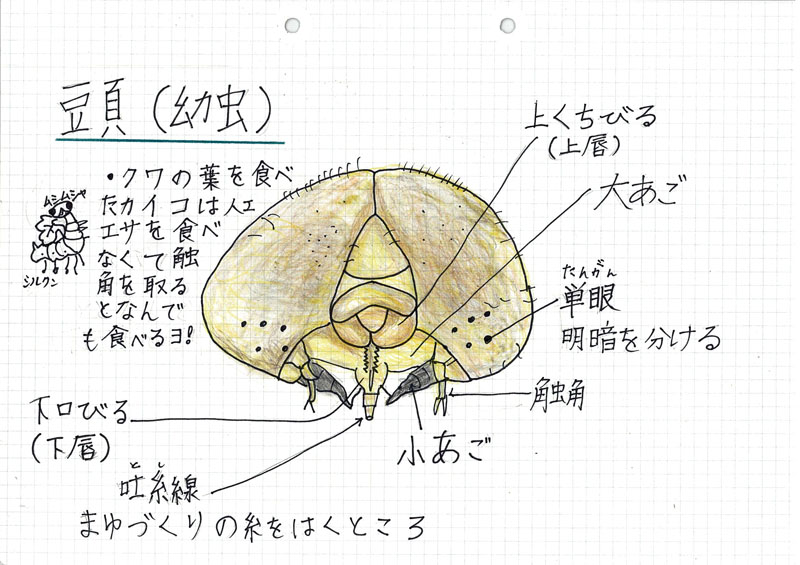 頭（幼虫）
・クワの葉を食べ
たカイコは人工
エサを食べ
なくて触
角を取る
となんで
も食べるヨ!
ムシムシャ
シルクン
上くちびる
（上唇）
大あご
たんがん
単眼
明暗を分ける
触角
小あご
下口びる
（下唇）
と し
吐糸線
まゆづくりの糸をはくところ